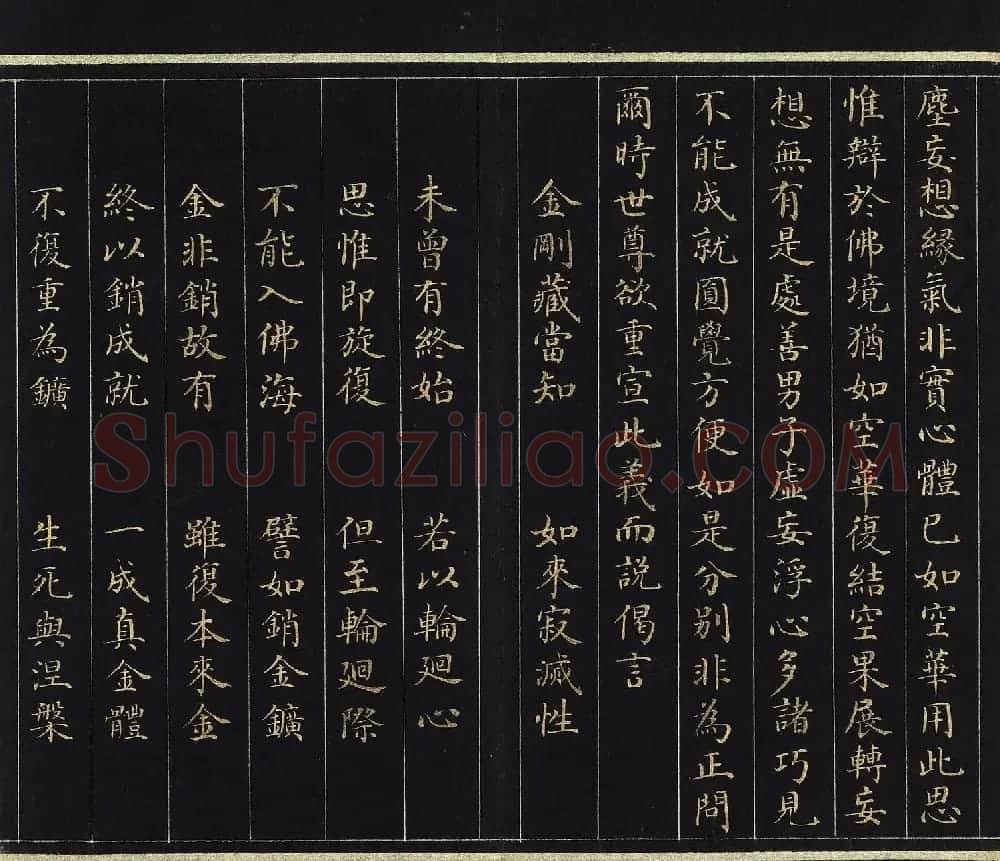 塵妄想緣氣非實心體已如空華用此思
惟辯於佛境猶如空華復結空果展轉妄
想無有是處善男子虛妄浮心多諸巧見
不能成就圓覺方便如是分別非為正問
爾時世尊欲重宣此義而說偈言
金剛藏當知 如來寂滅性
未曾有終始 若以輪迴心
思惟即旋復 但至輪迴際
不能入佛海 譬如銷金鑛
金非銷故有 雖復本來金
終以銷成就 一成真金體
不復重為鑛 生死與涅槃
Shufaziliao.COM